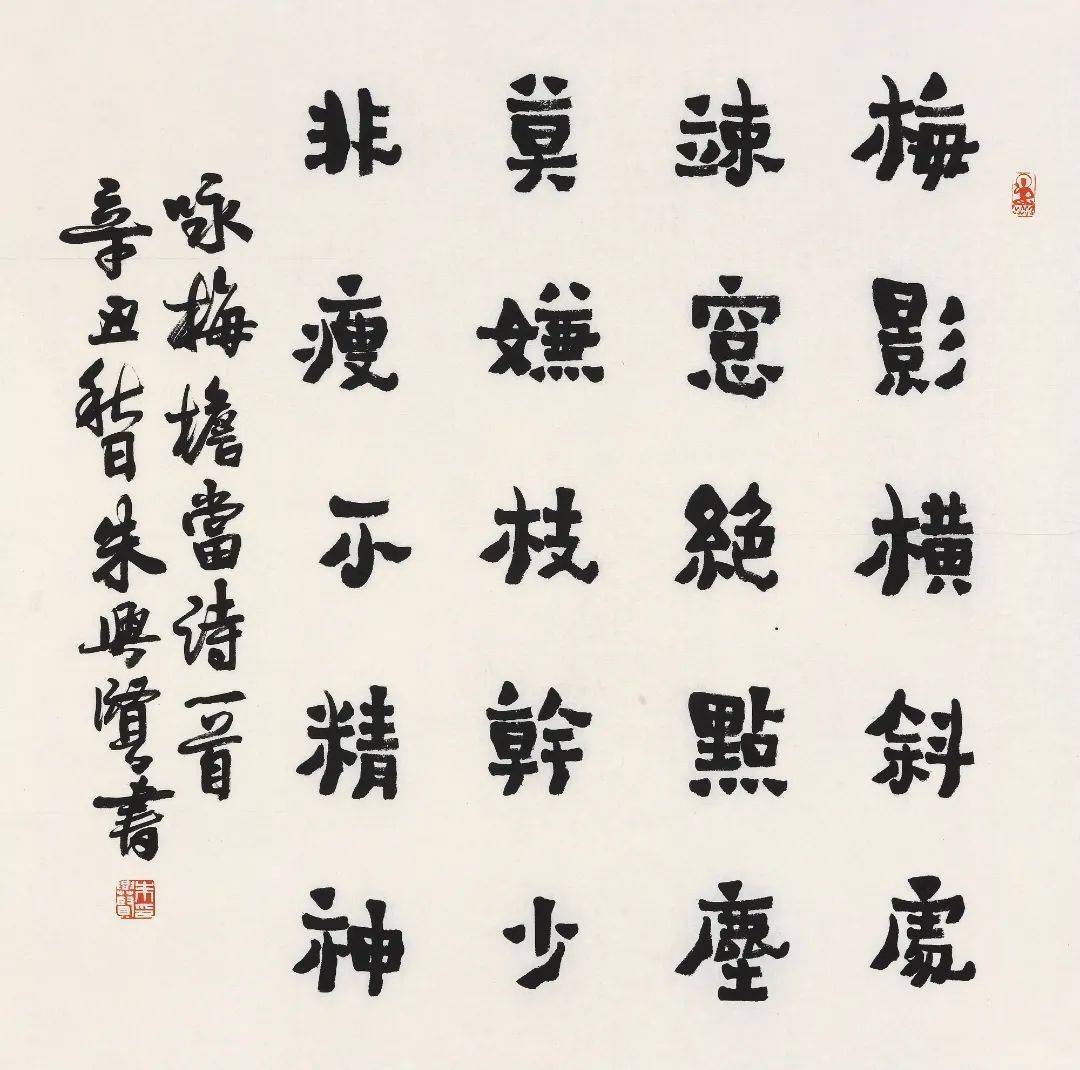 梅影橫斜處
竦窓絕點塵
莫嫌枝幹少
非瘦不精神
咏梅擔當詩一首
辛丑秋日朱興賢書